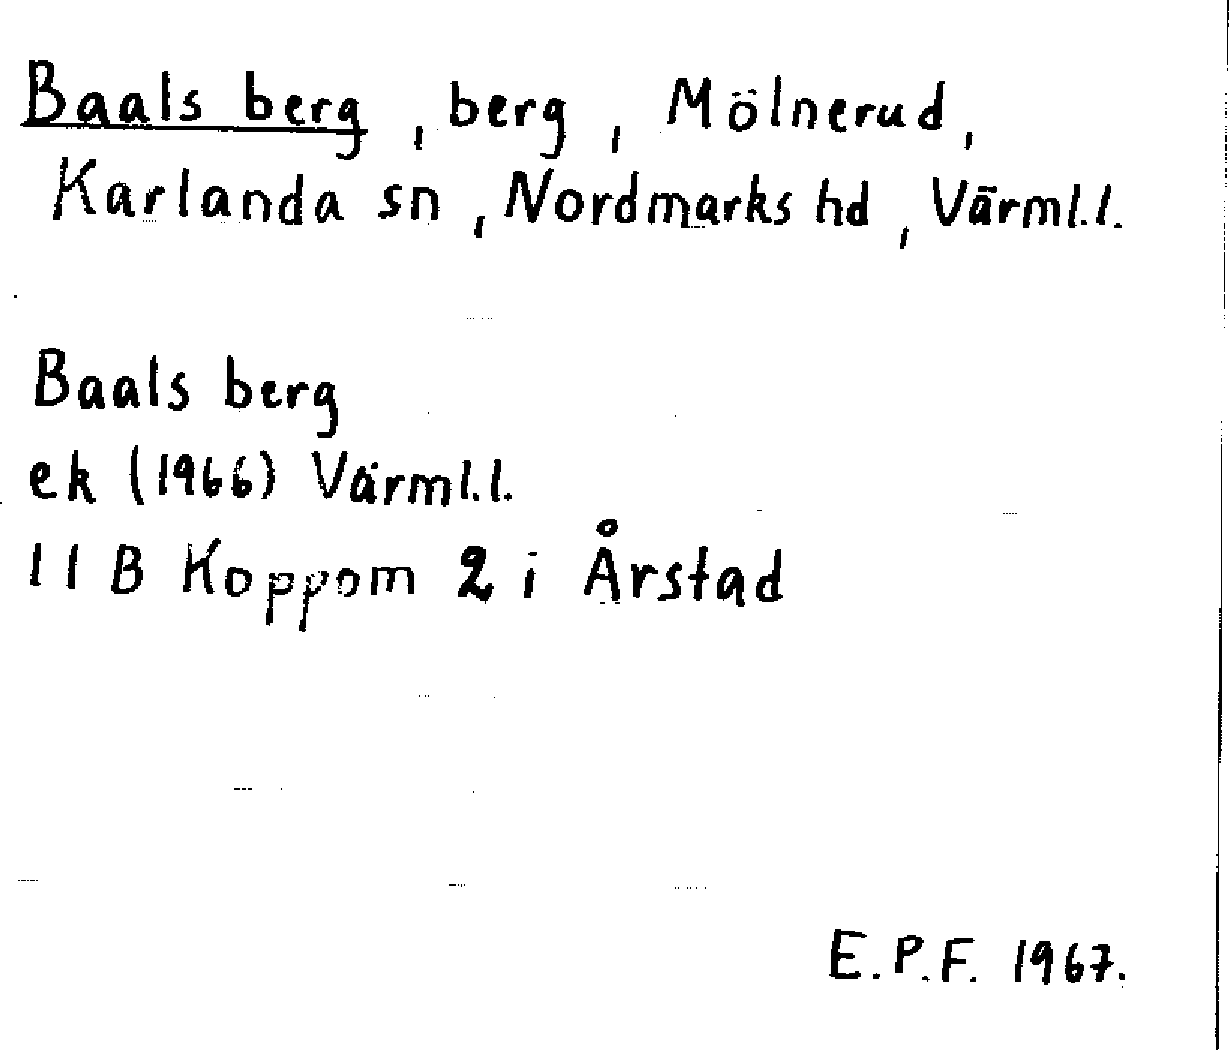 Baals berg, berg, Mölnerud,
Karlanda sn, Nordmarks hd, Värml.l.
Baals berg
ek (1966) Värml.l.
11 B Koppom 2 i Årstad
E.P.F. 1967.